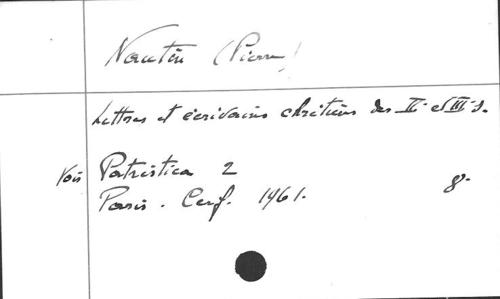 Nautin (Pierre)
Lettres et écrivains chrétiens des IIe et IIIe s.
Voir Patristica 2
Paris. Cerf. 1961. 8°